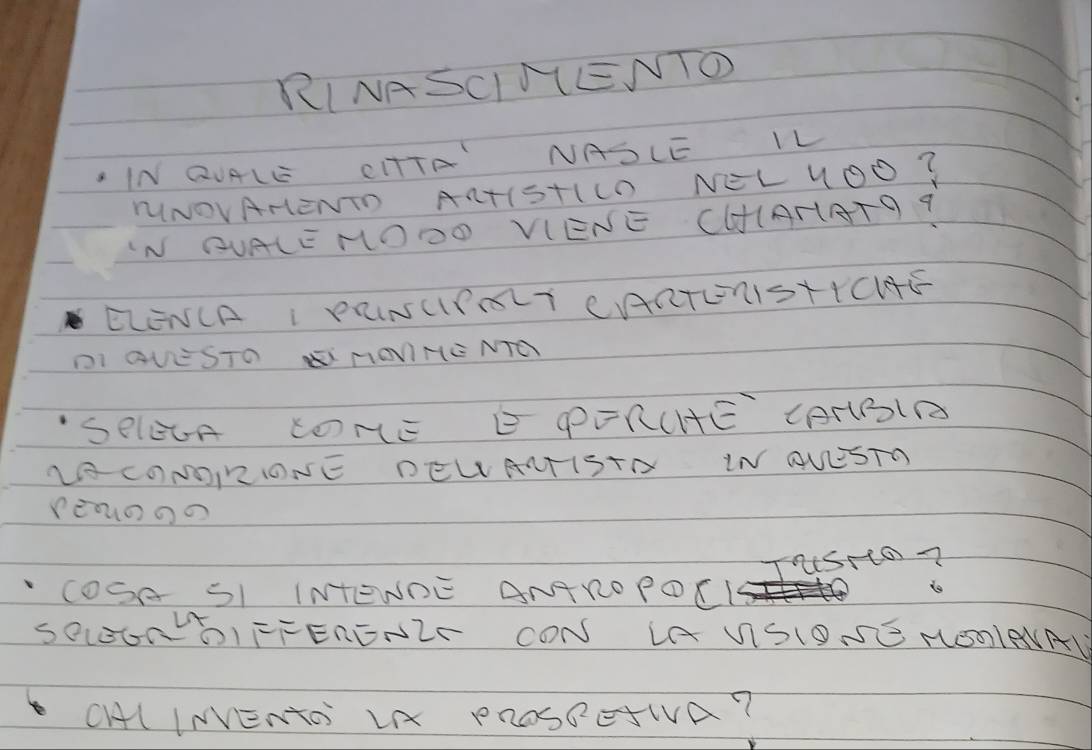 RINASCIMENTO
• IN QUALE CITTA' NASCE IL
RINOVAMENTO ARTISTICO NEL 400?
IN QUALE MODO VIENE CHIAMATO?
• ELENCA I PRINCIPALI CARTERISTICHE
DI QUESTO MOVIMENTO
• SPIEGA COME E PERCHE' CAMBIA
LA CONDIZIONE DELL ARTISTA IN QUESTO
PERIODO
• COSA SI INTENDE ANTROPOCISTRISMO?
SPIEGA LA DIFFERENZA CON LA VISIONE MEDIAVAL
• CHI INVENTO' LA PROSPETIVA?